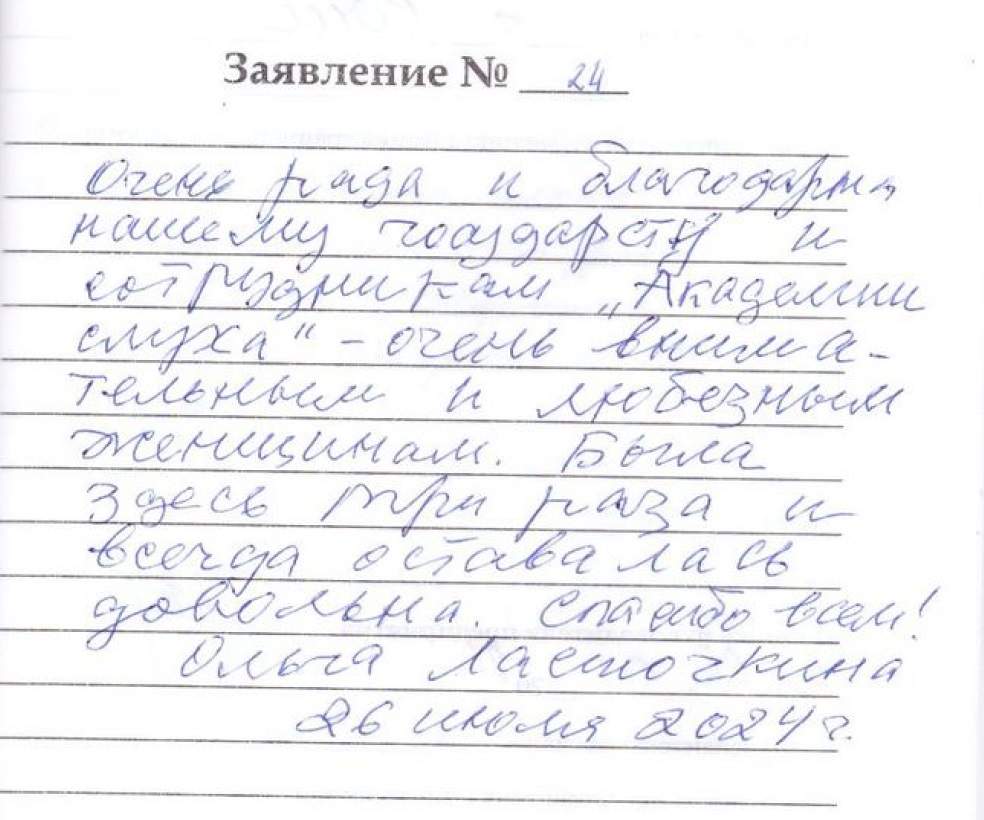 Заявление № 24
Очень рада и благодарна
нашему государству и
сотрудникам „Академии
слуха“ - очень внима-
тельным и любезным
женщинам. Была
здесь три раза и
всегда оставалась
довольна. Спасибо всем!
Ольга Ласточкина
26 июля 2024 г.